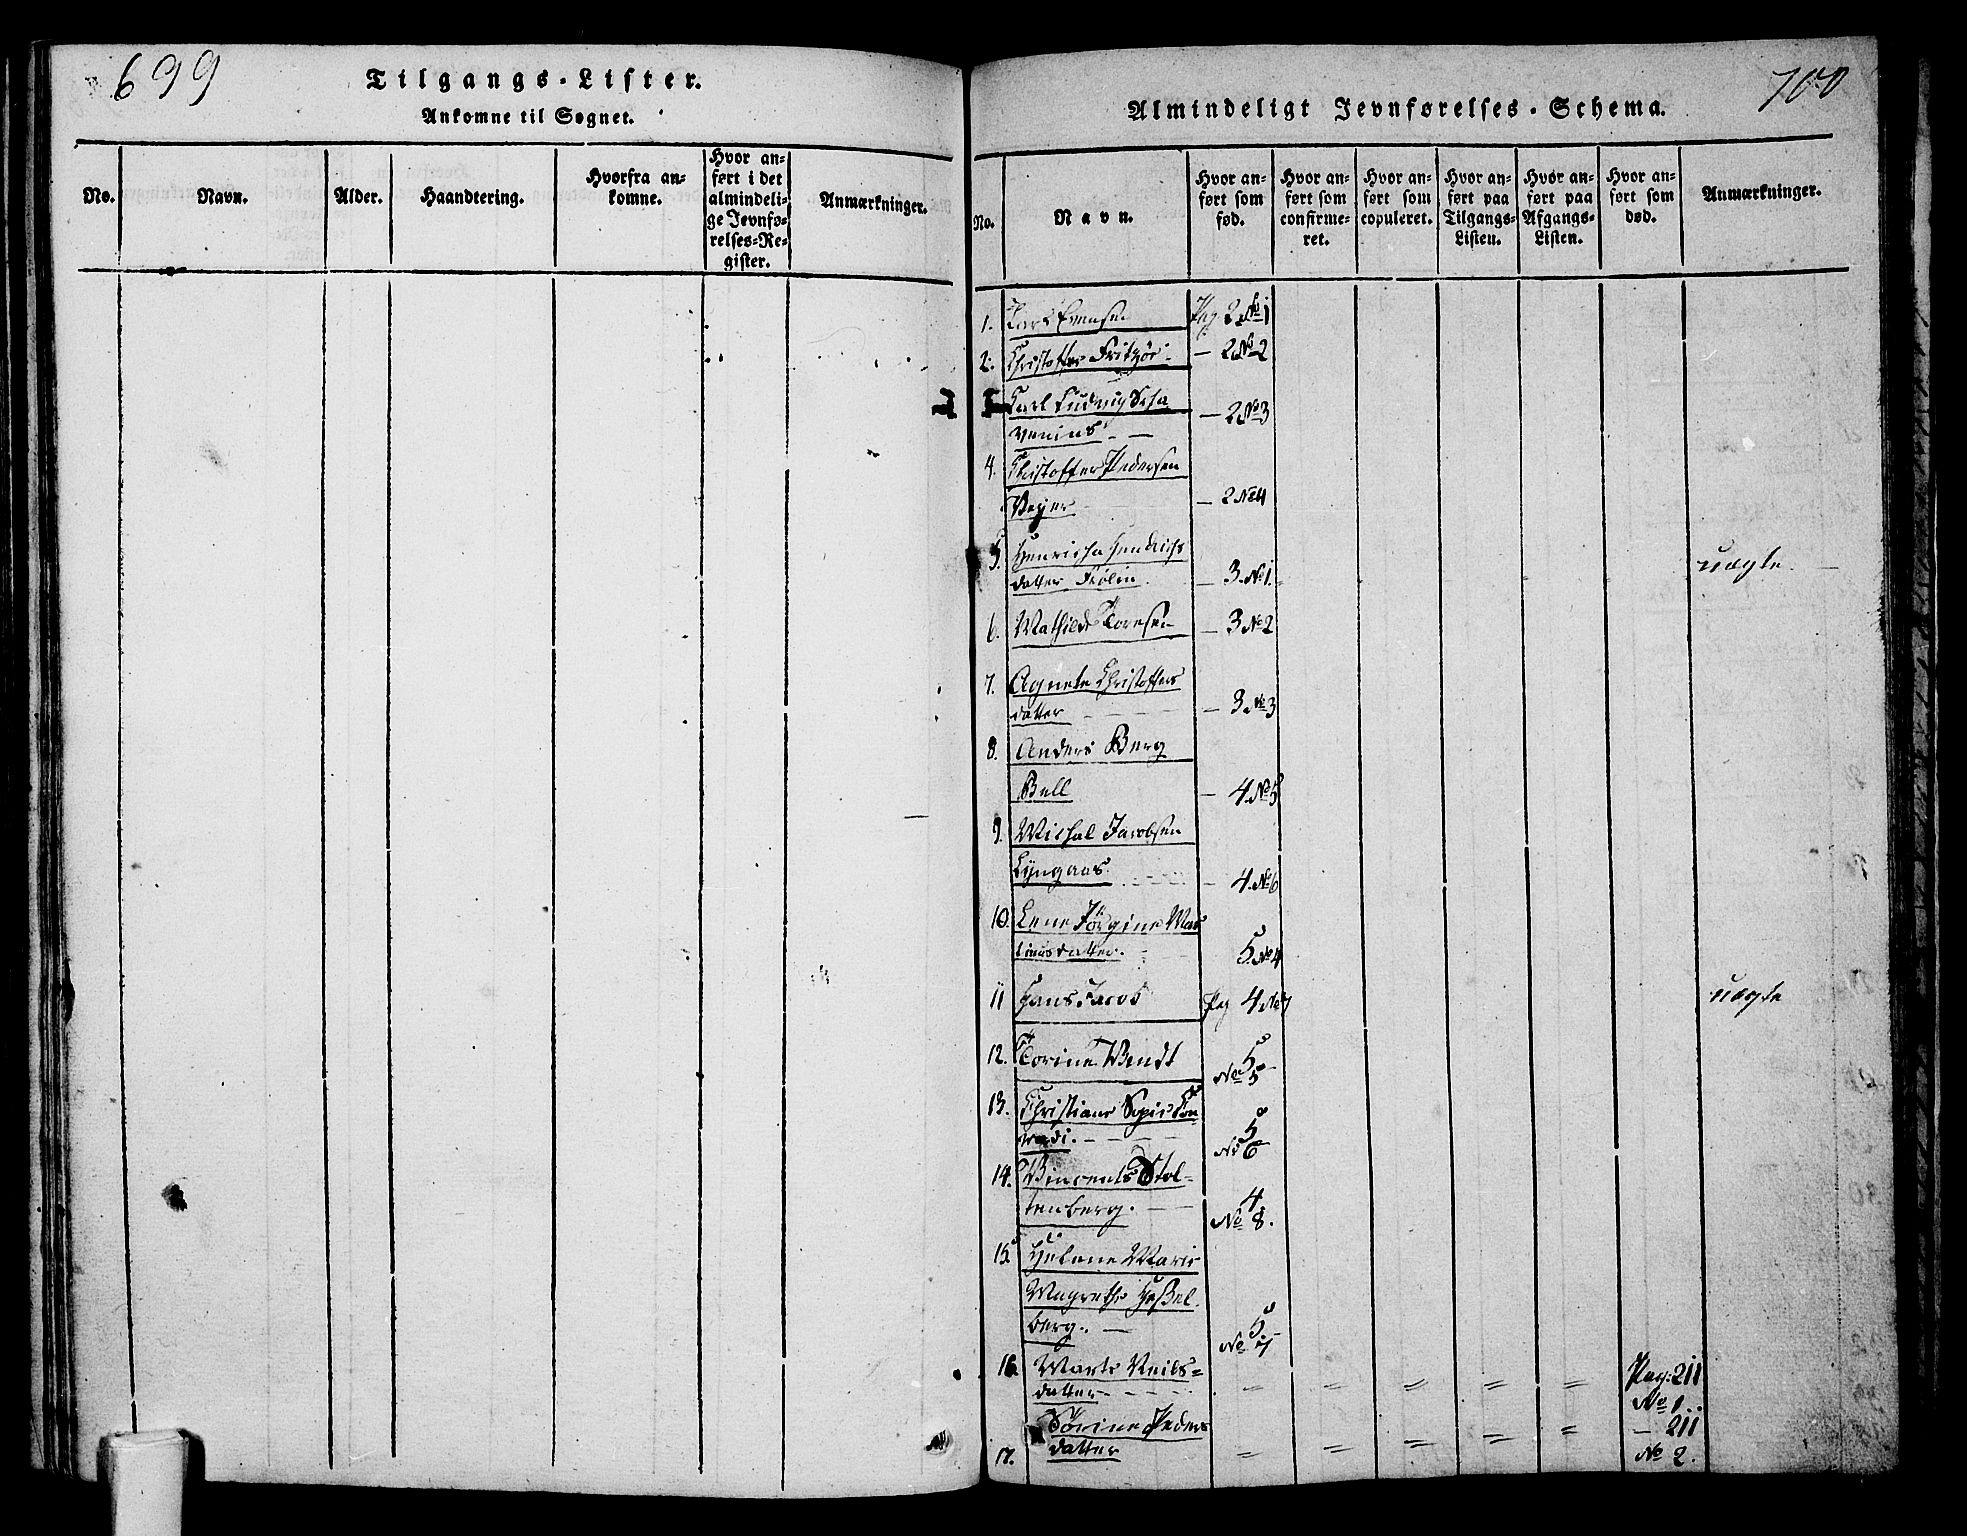 699
Tilgangs-Lister.
Ankomne til Sognet.
No.
Navn.
Alder.
Haandtering.
Hvorfra an-
komne.
Hvor an-
ført i det
almindeli-
ge Jevnfø-
relses-Re-
gister.
Anmærkninger.
700
Almindeligt Jevnførelses-Schema.
No.
Navn.
Hvor an-
ført som
fød.
Hvor an-
ført som
confirme-
ret.
Hvor an-
ført som
copuleret.
Hvor an-
ført paa
Tilgangs-
Listen.
Hvor an-
ført paa
Afgangs-
Listen.
Hvor an-
ført som
død.
Anmærkninger.
1. Lars Evensen Pag 2 No 1
2. Christoffer Fritzöe - 2 No 2
Carl Ludvig
- 2 No 3
4. Christoffer Pedersen
Beyer - 2 No 4
5. Henricha Hendrichs
datter Frölin - 3 No 1. uægte.
6. Mathilde Toresen - 3 No 2
7. Agnete Christoffers
datter - 3 No 3
8. Anders Berg
Bull - 4 No 5
9. Michal Jacobsen
Lyngaas. - 4 No 6
10. Lene Jörgine Mar
tinusdatter. 5 No 4
11 Hans Jacob Pag 4 No 7 uægte
12. Torine Wendt 5
No 5
13. Christiane Con
radi. 5
No 6
14. Vincents Stol-
tenberg. 4
No 8.
15. Helene Marie
Magrethe Hesßel
berg. 5
No 7
16. Marte Neils=
datter = = = = = Pag: 211
No 1.
Sörine Peders
17. datter = = = = = - 211
No 2.